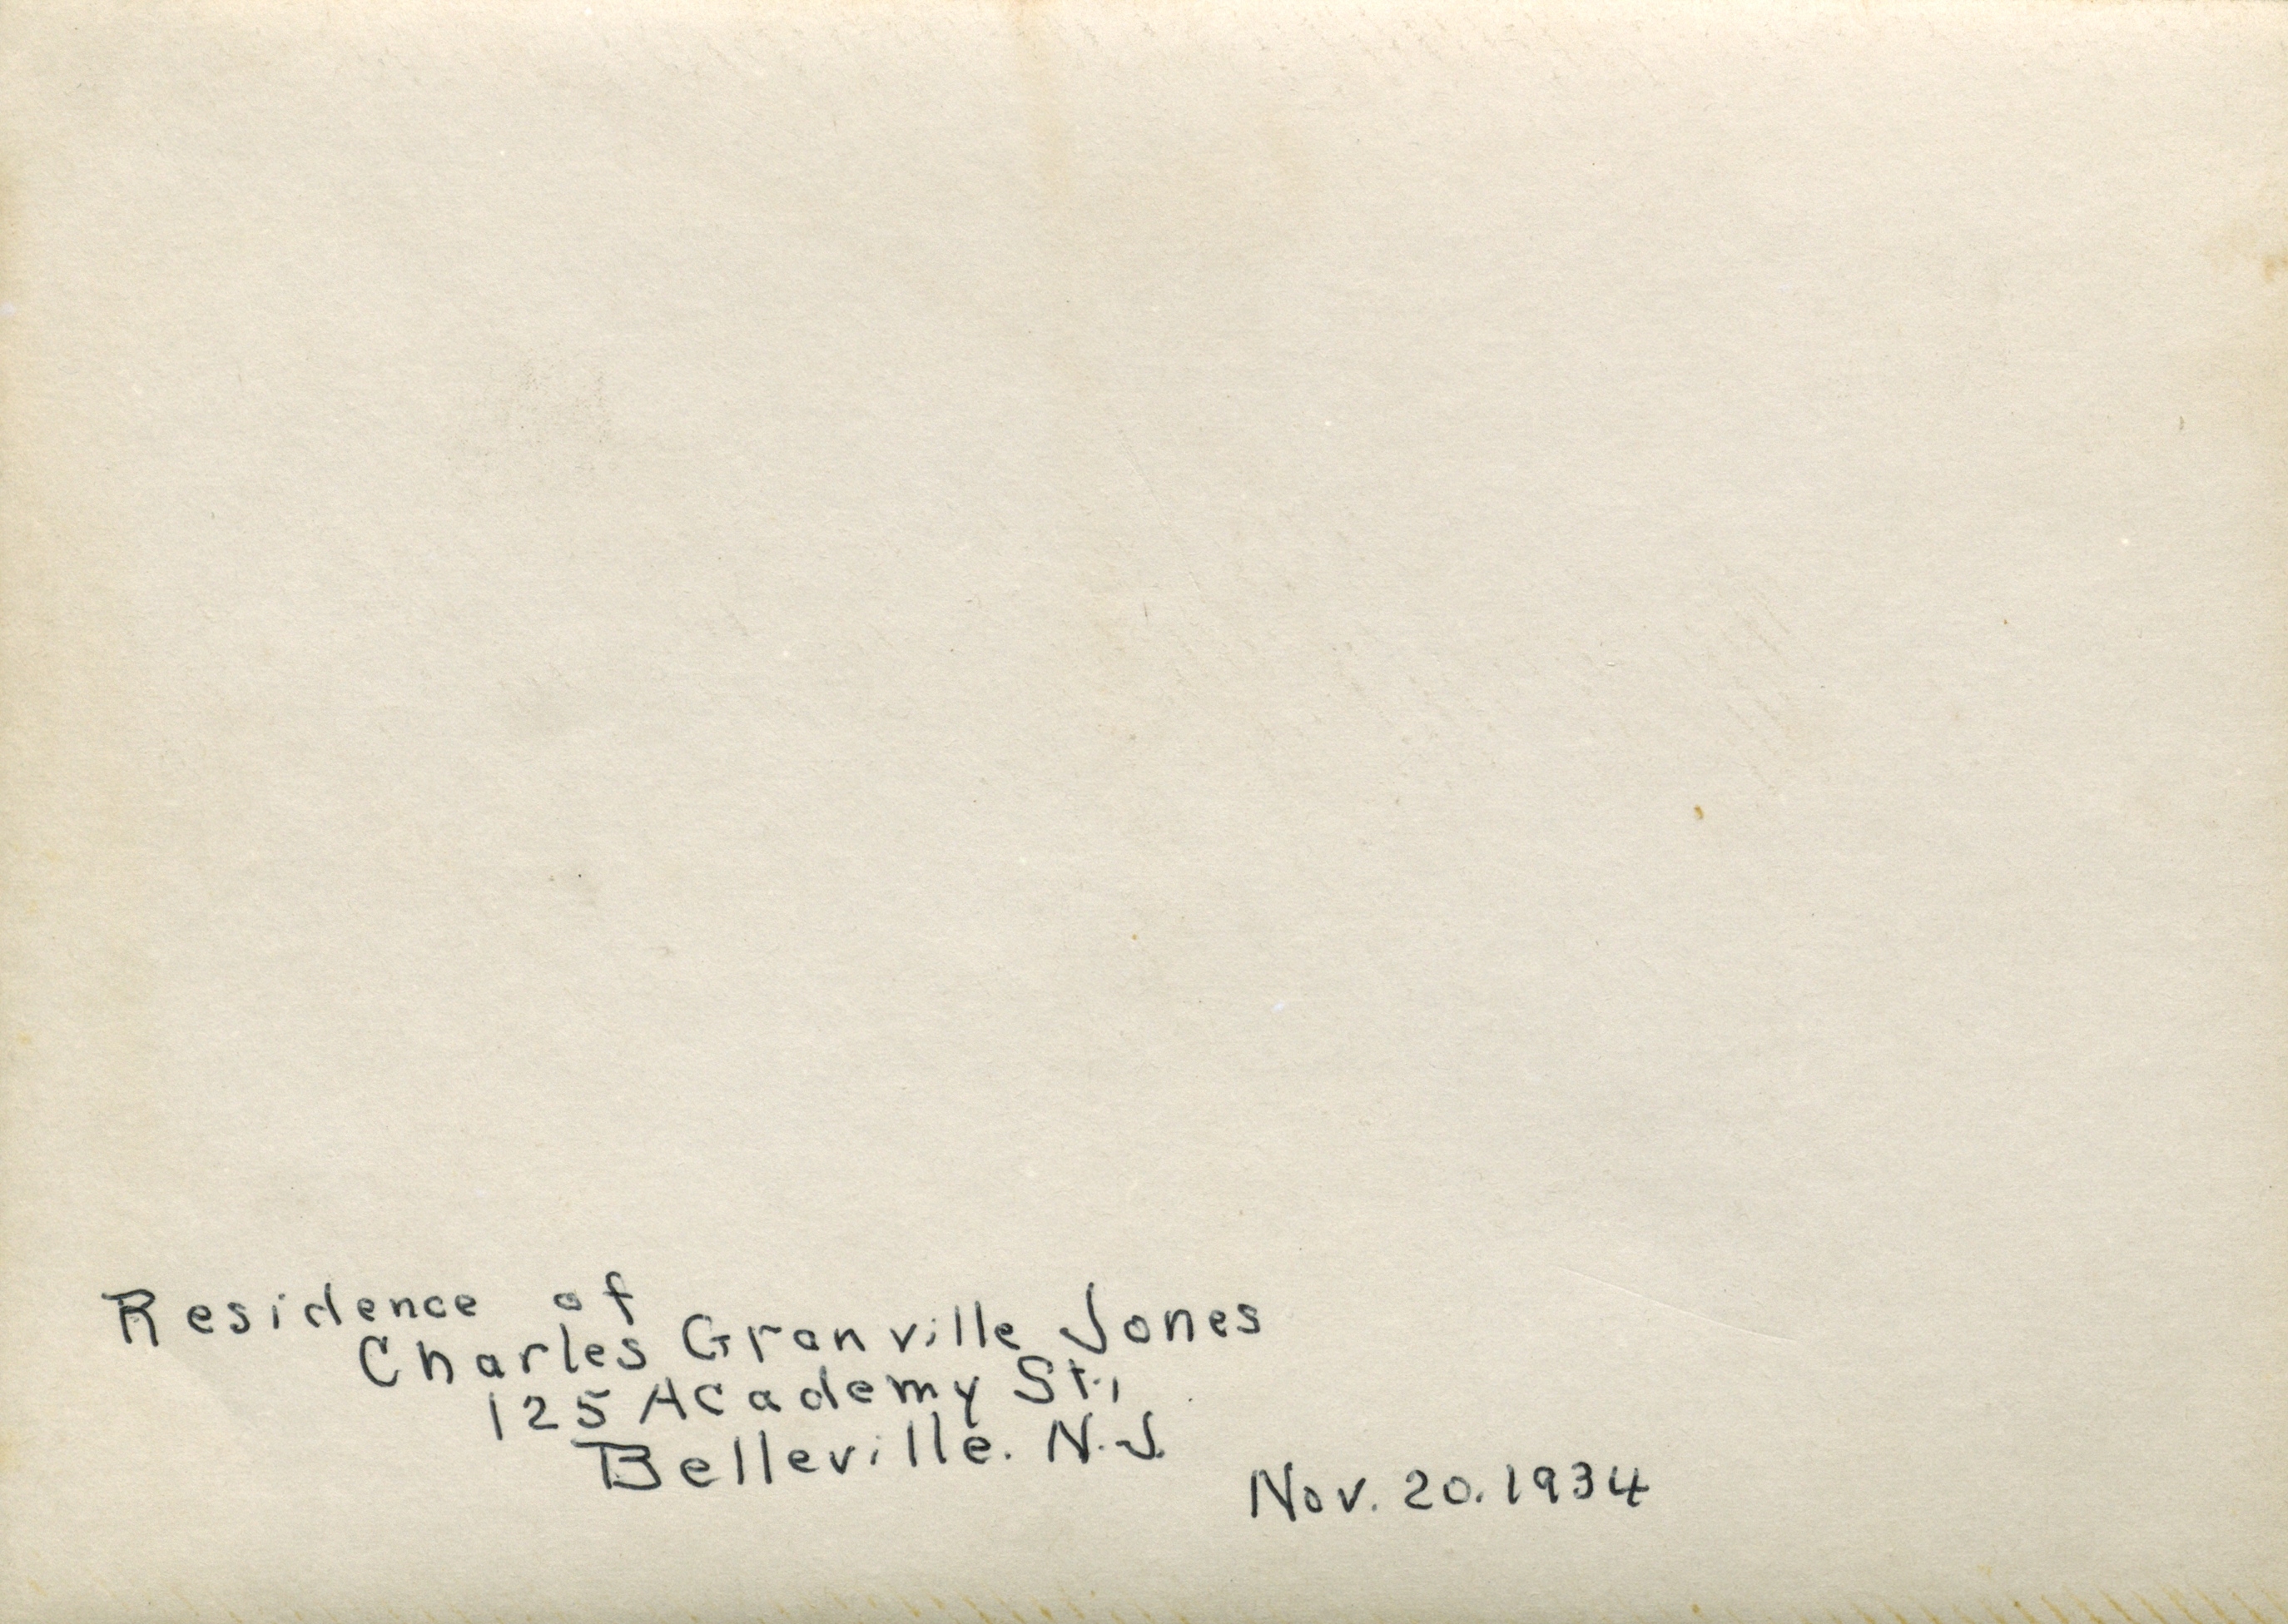 Residence of
Charles Granville Jones
125 Academy St.,
Belleville. N.J.
Nov. 20. 1934